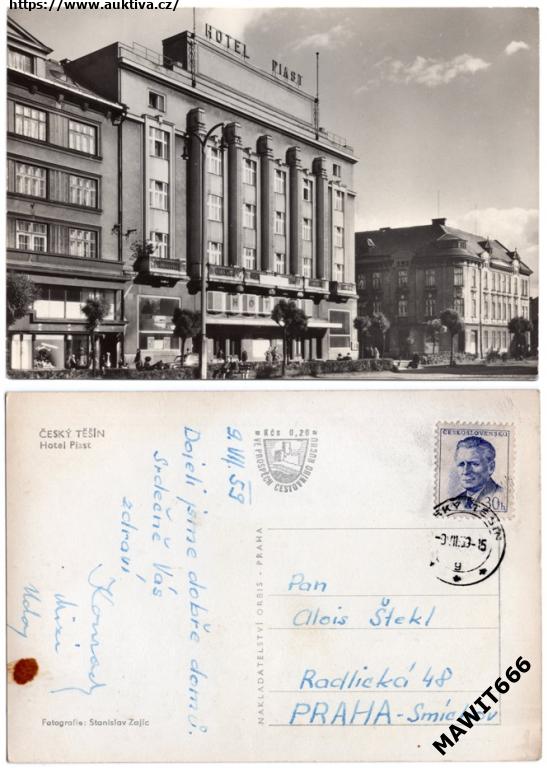 https://www.auktiva.cz/
HOTEL PIAST
ČESKÝ TĚŠÍN
Hotel Piast
9. VII. 59
Dojeli jsme dobře domů.
Srdečně Vás
zdraví
Konrady
Kčs 0,20
VE PROSPĚCH CESTOVNÍHO RUCHU
ČESKOSLOVENSKO
30h
ČESKÝ TĚŠÍN
NAKLADATELSTVÍ ORBIS - PRAHA
Pan
Alois Štekl
Radlická 48
PRAHA-Smíchov
Fotografie: Stanislav Zajíc
MAWIT666